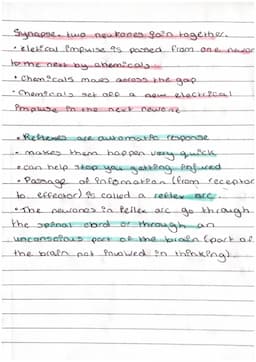 Synapse. two neurones join together.
• eletical impulse is passed from one neuron
to the next by chemicals
• Chemicals moves across the gap
• Chemicals set off a new electrical
impulse in the next neurone
• Reflexes are automatic response
• makes them happen very quick
• can help stop you getting injured
• Passage of infomation (from receptor
to effector) is called a reflex arc
• The neurones in reflex arc go through
the spinal cord or through an
unconscious part of the brain (part of
the brain not involved in thinking).